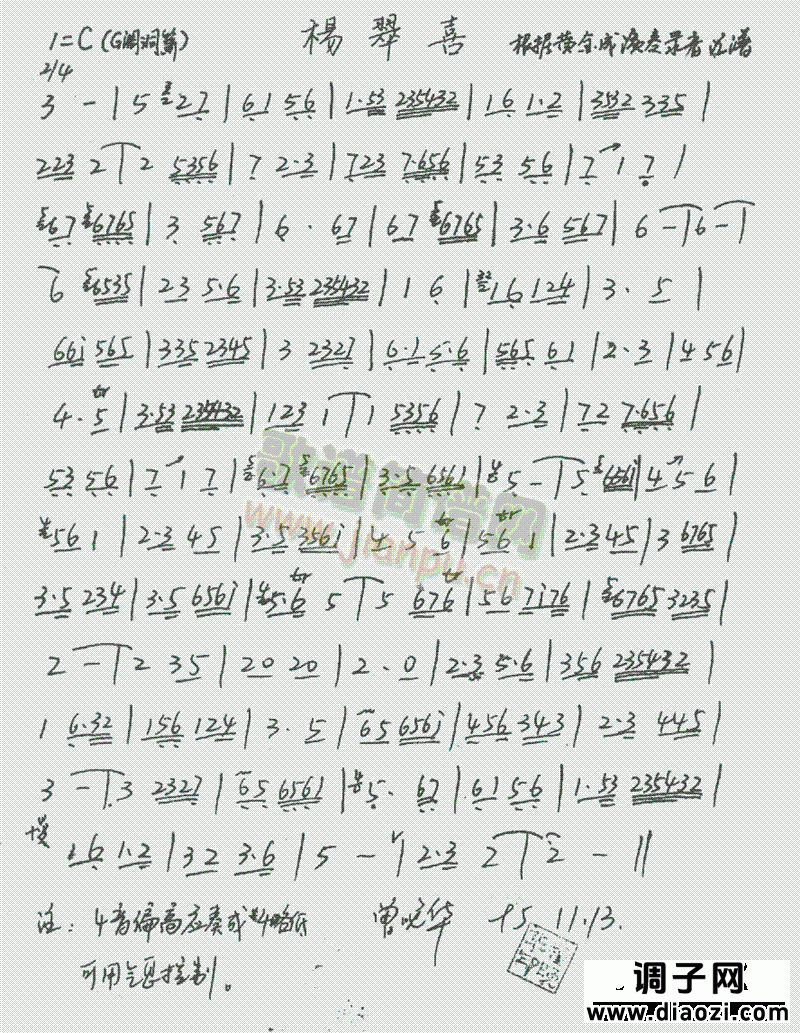 楊翠喜
1=C (G调洞箫) 根据黄金成演奏录音记谱
2/4
3 - | 5 27 | 61 56 | 1·53 235432 | 16 1·2 | 3532 335 |
223 2 | 2 5356 | 7 2·3 | 723 7·656 | 53 56 | 7 1 7 |
67 6765 | 3 567 | 6 · 67 | 67 6765 | 3·6 567 | 6 - | 6 - |
6 6535 | 23 5·6 | 3·53 235432 | 1 6 | 16 124 | 3 · 5 |
66i 565 | 335 2345 | 3 2327 | 6·1 5·6 | 565 61 | 2·3 | 456 |
4·5 | 3·53 235432 | 123 1 | 1 5356 | 7 2·3 | 72 7·656 |
53 56 | 7 1 7 | 6·7 6765 | 3·5 6561 | 5 - | 5 656i | 4 5 6 |
561 | 2·3 45 | 3·5 356i | 4 5 6 | 56 1 | 2·3 45 | 3 6765 |
3·5 234 | 3·5 656i | 5·6 5 | 5 676 | 56 7i76 | 6765 3235 |
2 - | 2 35 | 20 20 | 2·0 | 2·3 5·6 | 356 235432 |
1 6·32 | 156 124 | 3 · 5 | 65 656i | 456 343 | 2·3 445 |
3 - | 3 2327 | 65 6561 | 5· 67 | 61 56 | 1·53 235432 |
慢 16 1·2 | 32 3·6 | 5 - | 2·3 2 | 2 - ‖
注：4音偏高应奏成#4略低 曾晓华 95.11.13.
可用气息控制。
歌谱简谱网
www.jianpu.cn
调子网
www.diaozi.com